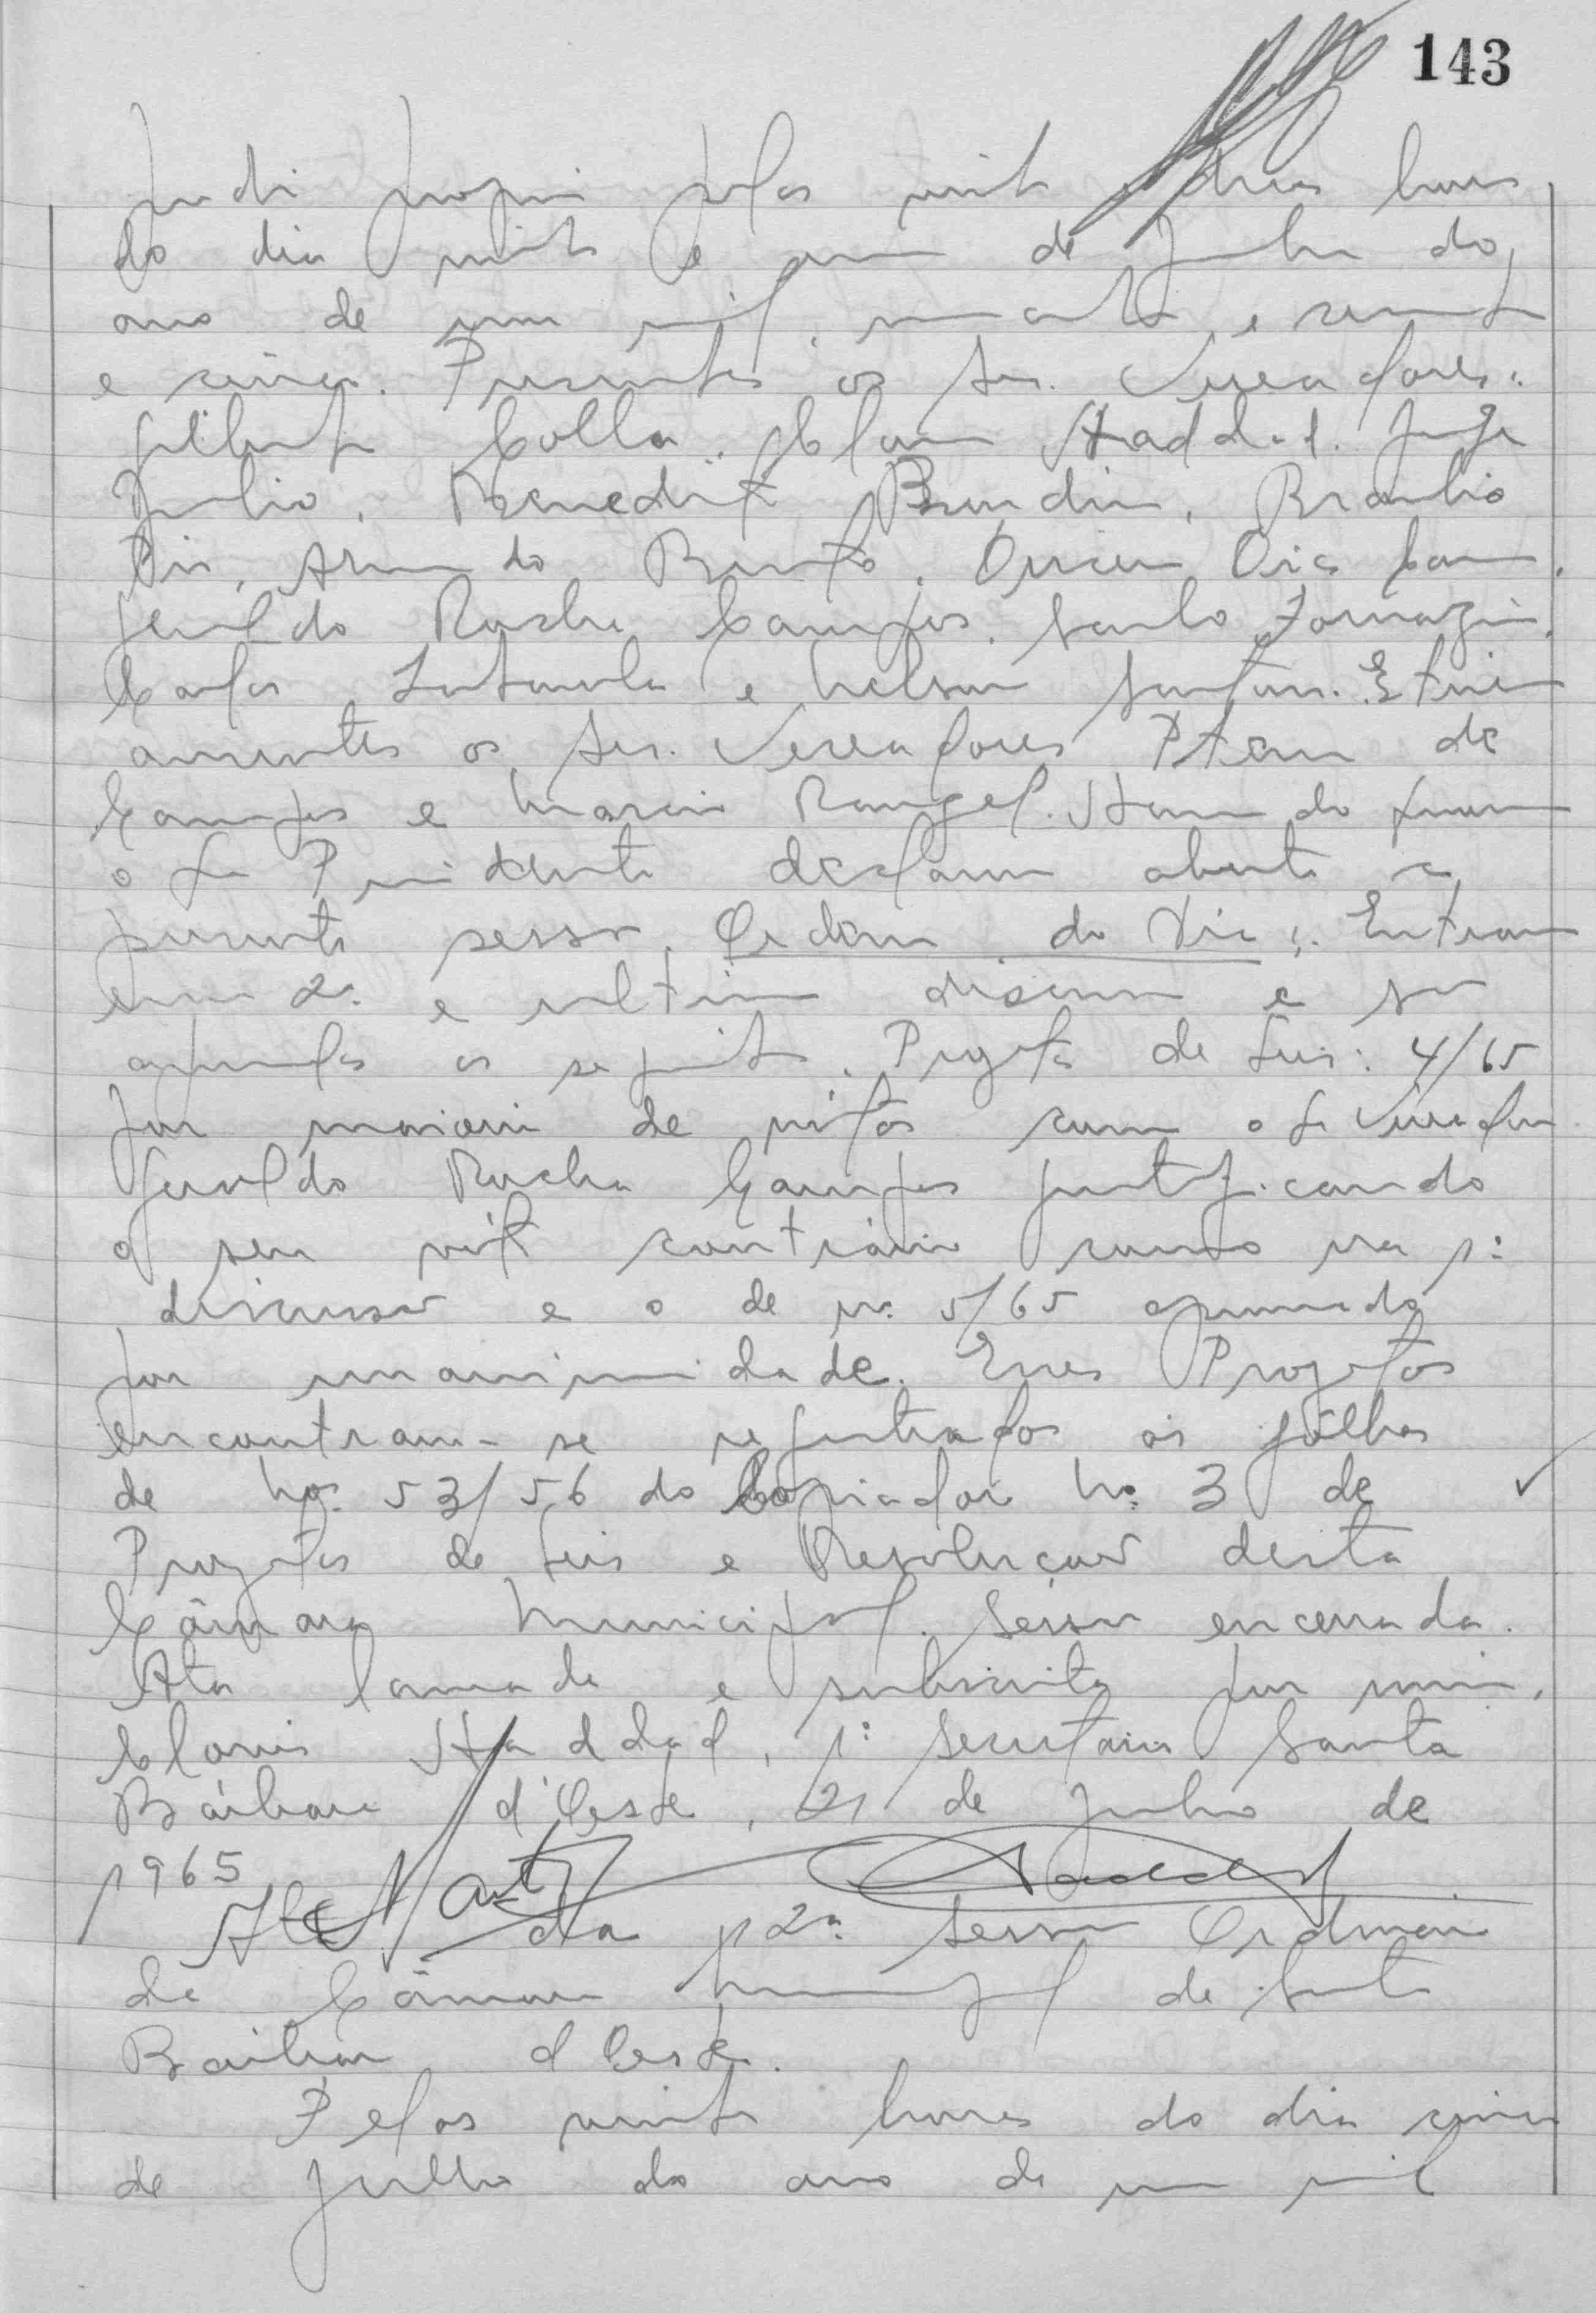 143
prédio próprio pelas vinte e duas horas
do dia vinte e um de Junho do
ano de um mil, novecentos e sessenta
e cinco. Presentes os Srs. Vereadores:
Gilberto Colla, Clovis Haddad, Jorge
Julio, Benedito Brundin, Braulio
Pio, Armando Bento, Dirceu Dias Carn
Geraldo Rocha Campos, Santo Tomazin,
Carlos e Nelson. Estive
ausentes os Srs. Vereadores de
Campos e Marcio Rangel. Havendo numero
o Sr Presidente declarou aberta a
presente sessão. Ordem do Dia: Entram
em 2ª e ultima discussão e são
aprovados os seguintes Projetos de Leis: 4/65
por maioria de votos com o Sr Vereador
Geraldo Rocha Campos justificando
o seu voto contrário como na 1ª
discussão e o de nº 5/65 aprovado
por unanimidade. Esses Projetos
encontram-se registrados ás fôlhas
de Nos. 53/56 do Copiador No. 3 de
Projetos de Leis e Resolução desta
Câmara Municipal. Sessão encerrada.
Ata lavrada e subscrita por mim,
Clovis Haddad, 1º Secretario Santa
Bárbara d'Oeste, 21 de Junho de
1965
Haddad
Ata da 12ª Sessão Ordinaria
da Câmara Municipal de Santa
Bárbara d Oeste.
Pelas vinte horas do dia cinco
de Julho do ano de um mil